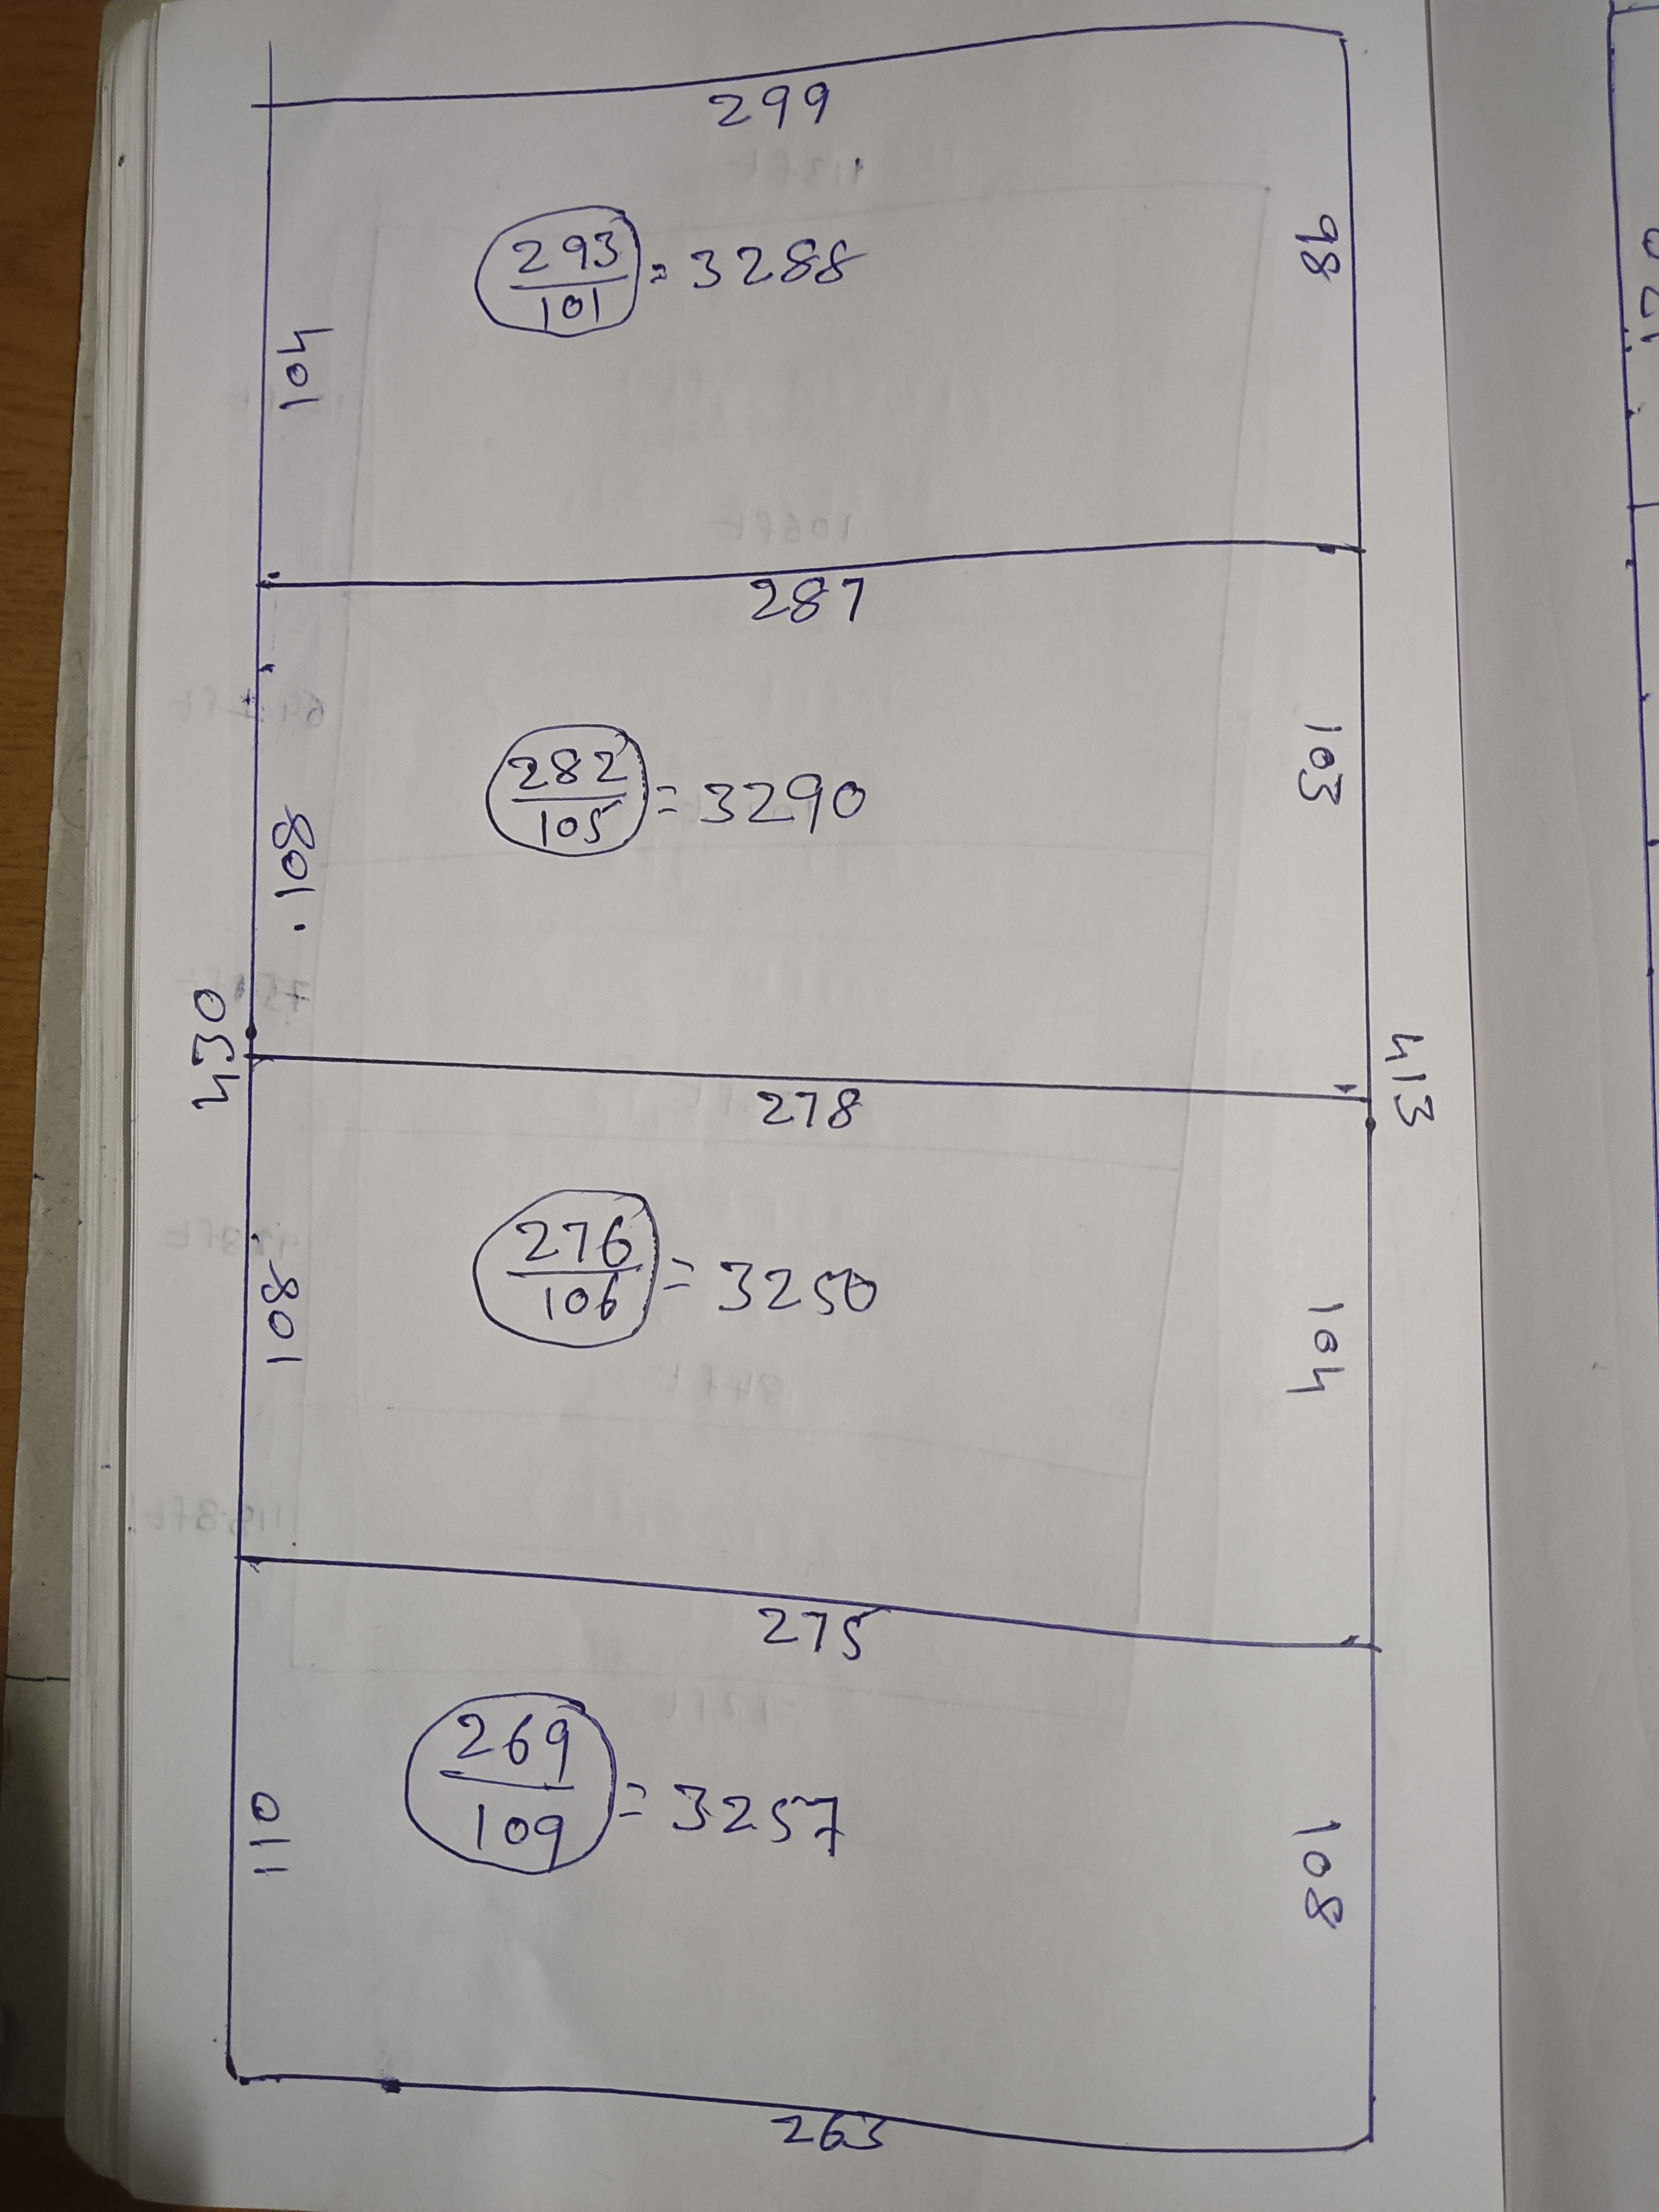 299
98
293
101
= 3288
104
287
103
282
105
= 3290
108
430
413
278
276
106
= 3250
108
104
275
269
109
= 3257
110
108
263